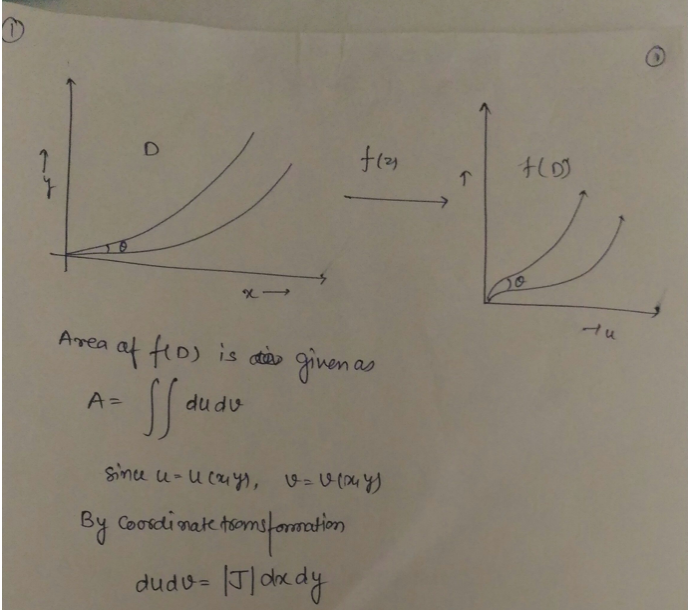 ①
①
D
f(z)
f(D)
↑
y
↑
θ
θ
x →
→ u
Area of f(D) is given as
A = ∬ du dv
Since u = u(x,y), v = v(x,y)
By Coordinate transformation
du dv = |J| dx dy